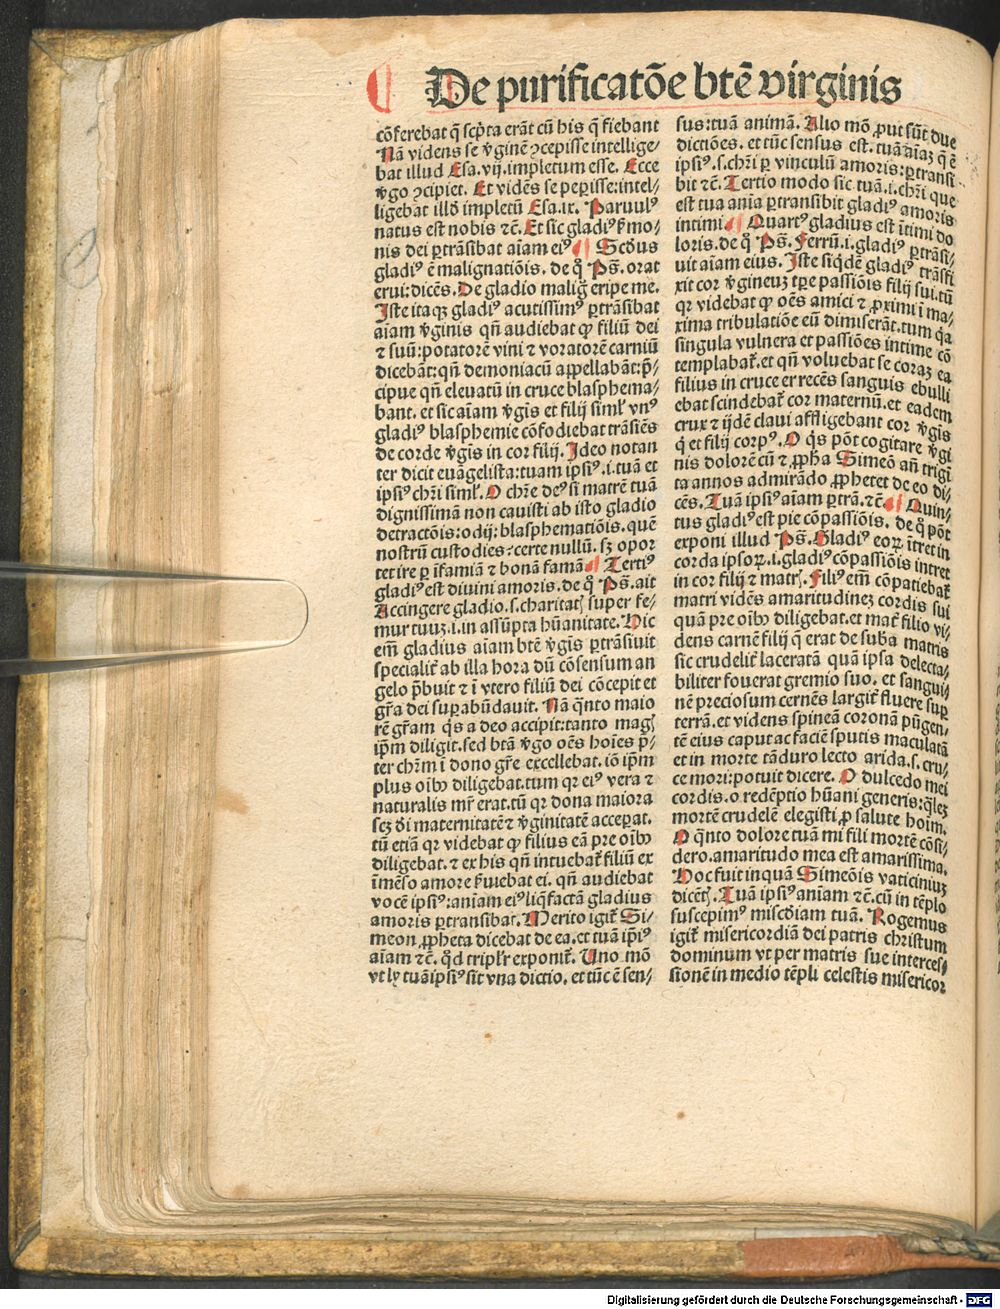 De purificatõe btẽ virginis
cõferebat q̃ scp̃ta erãt cũ his q̃ fiebant
Nã videns se v̾ginẽ ꝯcepisse intellige⸗
bat illud Esa. vij. impletum esse. Ecce
v̾go ꝯcipiet. Et vidẽs se peꝑisse: intel⸗
ligebat illđ impletũ Esa. ix. Paruulꝰ
natus est nobis ⁊c̃. Et sic gladiꝰ ẜmo⸗
nis dei ꝑtrãsibat aĩam eiꝰ Scđus
gladiꝰ ẽ malignatiõis. de qͦ Ps̃. orat
erui: dicẽs. De gladio malig̃ eripe me.
Iste itaqꝫ gladiꝰ acutissimꝰ ꝑtrãsibat
aĩam v̾ginis qñ audiebat ꝙ filiũ dei
⁊ suũ: potatorẽ vini ⁊ voratorẽ carniũ
dicebãt: qñ demoniacũ appellabãt: p̃⸗
cipue qñ eleuatũ in cruce blasphema⸗
bant. et sic aĩam v̾gis et filij siml̕ vnꝰ
gladiꝰ blasphemie cõfodiebat trãsiẽs
de corde v̾gis in cor filij. Ideo notan
ter dicit euãgelista: tuam ipsiꝰ .i. tuã et
ipsiꝰ chr̃i siml̕. O chr̃e deꝰ si matrẽ tuã
dignissimã non cauisti ab isto gladio
detractõis: odij: blasphematiõis. quẽ
nostrũ custodies: certe nullũ. sꝫ opor
tet ire ꝑ ĩfamiã ⁊ bonã famã Tertiꝰ
gladiꝰ est diuini amoris. de qͦ Ps̃. ait
Accingere gladio .s. charitatꝭ super fe⸗
mur tuuꝫ .i. in assũpta hũanitate. Hic
em̃ gladius aĩam btẽ v̾gis ꝑtrãsiuit
specialit̕ ab illa hora dũ cõsensum an
gelo p̃buit ⁊ ĩ vtero filiũ dei cõcepit et
gr̃a dei suꝑabũdauit. Nã qͣnto maio
rẽ gr̃am qͥs a deo accipit: tanto magꝭ
ip̃m diligit. sed btã v̾go oẽs hoĩes p̃⸗
ter chr̃m ĩ dono gr̃e excellebat. iõ ip̃m
plus oĩbꝰ diligebat. tum qꝛ eiꝰ vera ⁊
naturalis mr̃ erat. tũ qꝛ dona maiora
scꝫ đi maternitatẽ ⁊ v̾ginitatẽ acceꝑat.
tũ etiã qꝛ videbat ꝙ filius eã pre oĩbꝰ
diligebat. ⁊ ex his qñ intuebat̕ filiũ ex
ĩmẽso amore ẜuiebat ei. qñ audiebat
vocẽ ipsiꝰ: aniam eiꝰ liq̃facta gladius
amoris ꝑtransibat. Merito igit̕ Si⸗
meon ꝓpheta dicebat de ea. et tuã ip̃iꝰ
aĩam ⁊c̃. qđ triplr̕ exponit̕. Uno mõ
vt ly tuã ipsiꝰ sit vna dictio. et tũc ẽ sen⸗
sus: tuã animã. Alio mõ ꝓut sũt due
dictiões. et tũc sensus est. tuã aĩaꝫ q̃ ẽ
ipsiꝰ .s. chr̃i ꝑ vinculũ amoris: ꝑtransi
bit ⁊c̃. Tertio modo sic tuã .i. chr̃i que
est tua aĩa ꝑtransibit gladiꝰ amoris
intimi Quartꝰ gladius est ĩtimi do
loris. de qͦ Ps̃. Ferrũ .i. gladiꝰ ꝑtrãsi⸗
uit aĩam eius. Iste siqͥdẽ gladiꝰ trãsfi
xit cor v̾gineuꝫ tꝑe passiõis filij sui. tũ
qꝛ videbat ꝙ oẽs amici ⁊ ꝓximi ĩ ma⸗
xima tribulatiõe eũ dimiserãt. tum qꝛ
singula vulnera et passiões intime cõ
templabat̕. et qñ voluebat se coraꝫ ea
filius in cruce et recẽs sanguis ebulli
ebat scindebat̕ cor maternũ. et eadem
crux ⁊ ijdẽ claui affligebant cor v̾gis
qͥ et filij corpꝰ. O qͥs põt cogitare v̾gi
nis dolorẽ cũ ⁊ ꝓpha Simeõ añ trigĩ
ta annos admirãdo ꝓphetet de eo di⸗
cẽs. Tuã ipsiꝰ aĩam ꝑtrã. ⁊c̃. Quin⸗
tus gladiꝰ est pie cõpassiõis. de qͦ põt
exponi illud Ps̃. Gladiꝰ eoꝝ ĩtret in
corda ipsoꝝ .i. gladiꝰ cõpassiõis intret
in cor filij ⁊ matrꝭ. Filiꝰ em̃ cõpatiebat̕
matri vidẽs amaritudineꝫ cordis sui
quã pre oĩbꝰ diligebat. et mat̕ filio vi⸗
dens carnẽ filij q̃ erat de suba matris
sic crudelit̕ laceratã quã ipsa delecta⸗
biliter fouerat gremio suo. et sangui⸗
nẽ preciosum cernẽs largit̕ fluere suꝑ
terrã. et videns spineã coronã pũgen⸗
tẽ eius caput ac faciẽ sputis maculatã
et in morte tã duro lecto arida .s. cru⸗
ce mori: potuit dicere. O dulcedo mei
cordis. o redẽptio hũani generis: qͣleꝫ
mortẽ crudelẽ elegisti ꝓ salute hoĩm.
O qͣnto dolore tuã mi fili mortẽ cõsi⸗
dero. amaritudo mea est amarissima.
Hoc fuit inquã Simeõis vaticiniuꝫ
dicẽtꝭ. Tuã ipsiꝰ aniam ⁊c̃. cũ in tẽplo
suscepimꝰ miscđiam tuã. Rogemus
igit̕ misericordiã dei patris christum
dominum vt per matris sue interces⸗
sionẽ in medio tẽpli celestis misericor
Digitalisierung gefördert durch die Deutsche Forschungsgemeinschaft - DFG